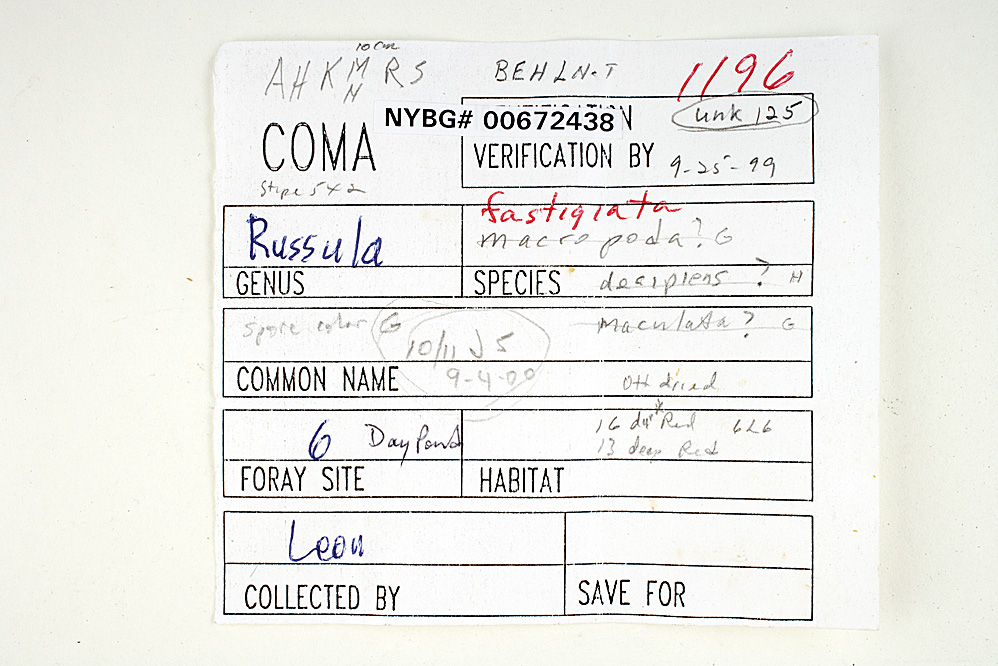 10 cm
AHKMRS
N
BEHLN-T
1196
NYBG# 00672438
unk 125
COMA
VERIFICATION BY 9-25-99
Stipe 5x2
Russula
fastigiata
macropoda? G
GENUS
SPECIES
decipiens ? H
spore color G
maculata? G
10/11 J5
9-4-00
COMMON NAME
OH dried
6 Day Pond
16 dk Red 6L6
13 deep Red
FORAY SITE
HABITAT
Leon
COLLECTED BY
SAVE FOR